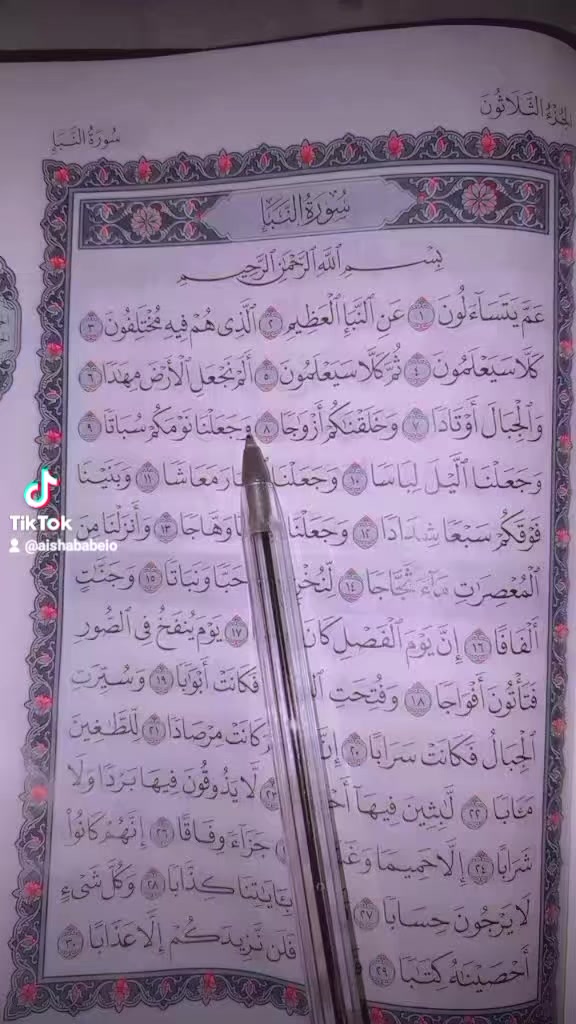 الجزء الثلاثون
سورة النبإ
سُورَةُ النَّبَإِ
بِسْمِ ٱللَّهِ ٱلرَّحْمَٰنِ ٱلرَّحِيمِ
عَمَّ يَتَسَآءَلُونَ ١ عَنِ ٱلنَّبَإِ ٱلْعَظِيمِ ٢ ٱلَّذِى هُمْ فِيهِ مُخْتَلِفُونَ ٣
كَلَّا سَيَعْلَمُونَ ٤ ثُمَّ كَلَّا سَيَعْلَمُونَ ٥ أَلَمْ نَجْعَلِ ٱلْأَرْضَ مِهَٰدًا ٦
وَٱلْجِبَالَ أَوْتَادًا ٧ وَخَلَقْنَٰكُمْ أَزْوَٰجًا ٨ وَجَعَلْنَا نَوْمَكُمْ سُبَاتًا ٩
وَجَعَلْنَا ٱلَّيْلَ لِبَاسًا ١٠ وَجَعَلْنَا مَعَاشًا ١١ وَبَنَيْنَا
فَوْقَكُمْ سَبْعًا شِدَادًا ١٢ وَجَعَلْنَا وَهَّاجًا ١٣ وَأَنزَلْنَا مِنَ
ٱلْمُعْصِرَٰتِ مَآءً ثَجَّاجًا ١٤ لِّنُخْرِجَ حَبًّا وَنَبَاتًا ١٥ وَجَنَّٰتٍ
أَلْفَافًا ١٦ إِنَّ يَوْمَ ٱلْفَصْلِ كَانَ ١٧ يَوْمَ يُنفَخُ فِى ٱلصُّورِ
فَتَأْتُونَ أَفْوَاجًا ١٨ وَفُتِحَتِ فَكَانَتْ أَبْوَٰبًا ١٩ وَسُيِّرَتِ
ٱلْجِبَالُ فَكَانَتْ سَرَابًا ٢٠ إِنَّ كَانَتْ مِرْصَادًا ٢١ لِّلطَّٰغِينَ
مَـَٔابًا ٢٢ لَّٰبِثِينَ فِيهَآ لَّا يَذُوقُونَ فِيهَا بَرْدًا وَلَا
شَرَابًا ٢٤ إِلَّا حَمِيمًا جَزَآءً وِفَاقًا ٢٦ إِنَّهُمْ كَانُوا۟
لَا يَرْجُونَ حِسَابًا ٢٧ بِـَٔايَٰتِنَا كِذَّابًا ٢٨ وَكُلَّ شَىْءٍ
أَحْصَيْنَٰهُ كِتَٰبًا ٢٩ فَلَن نَّزِيدَكُمْ إِلَّا عَذَابًا ٣٠
TikTok
@aishababeio